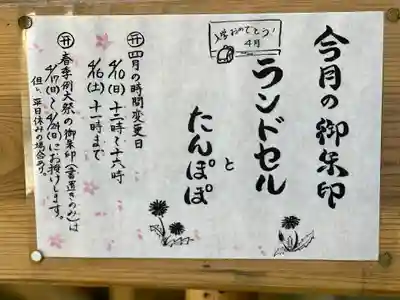 今月の御朱印
ランドセル
と
たんぽぽ
入学おめでとう!
4月
四月の時間変更日
4/10(日)十二時〜十六時
4/16(土)十一時まで
春季例大祭の御朱印(書置きのみ)は
4/17(日)〜4/24(日)にお授けします。
但し、平日休みの場合あり。